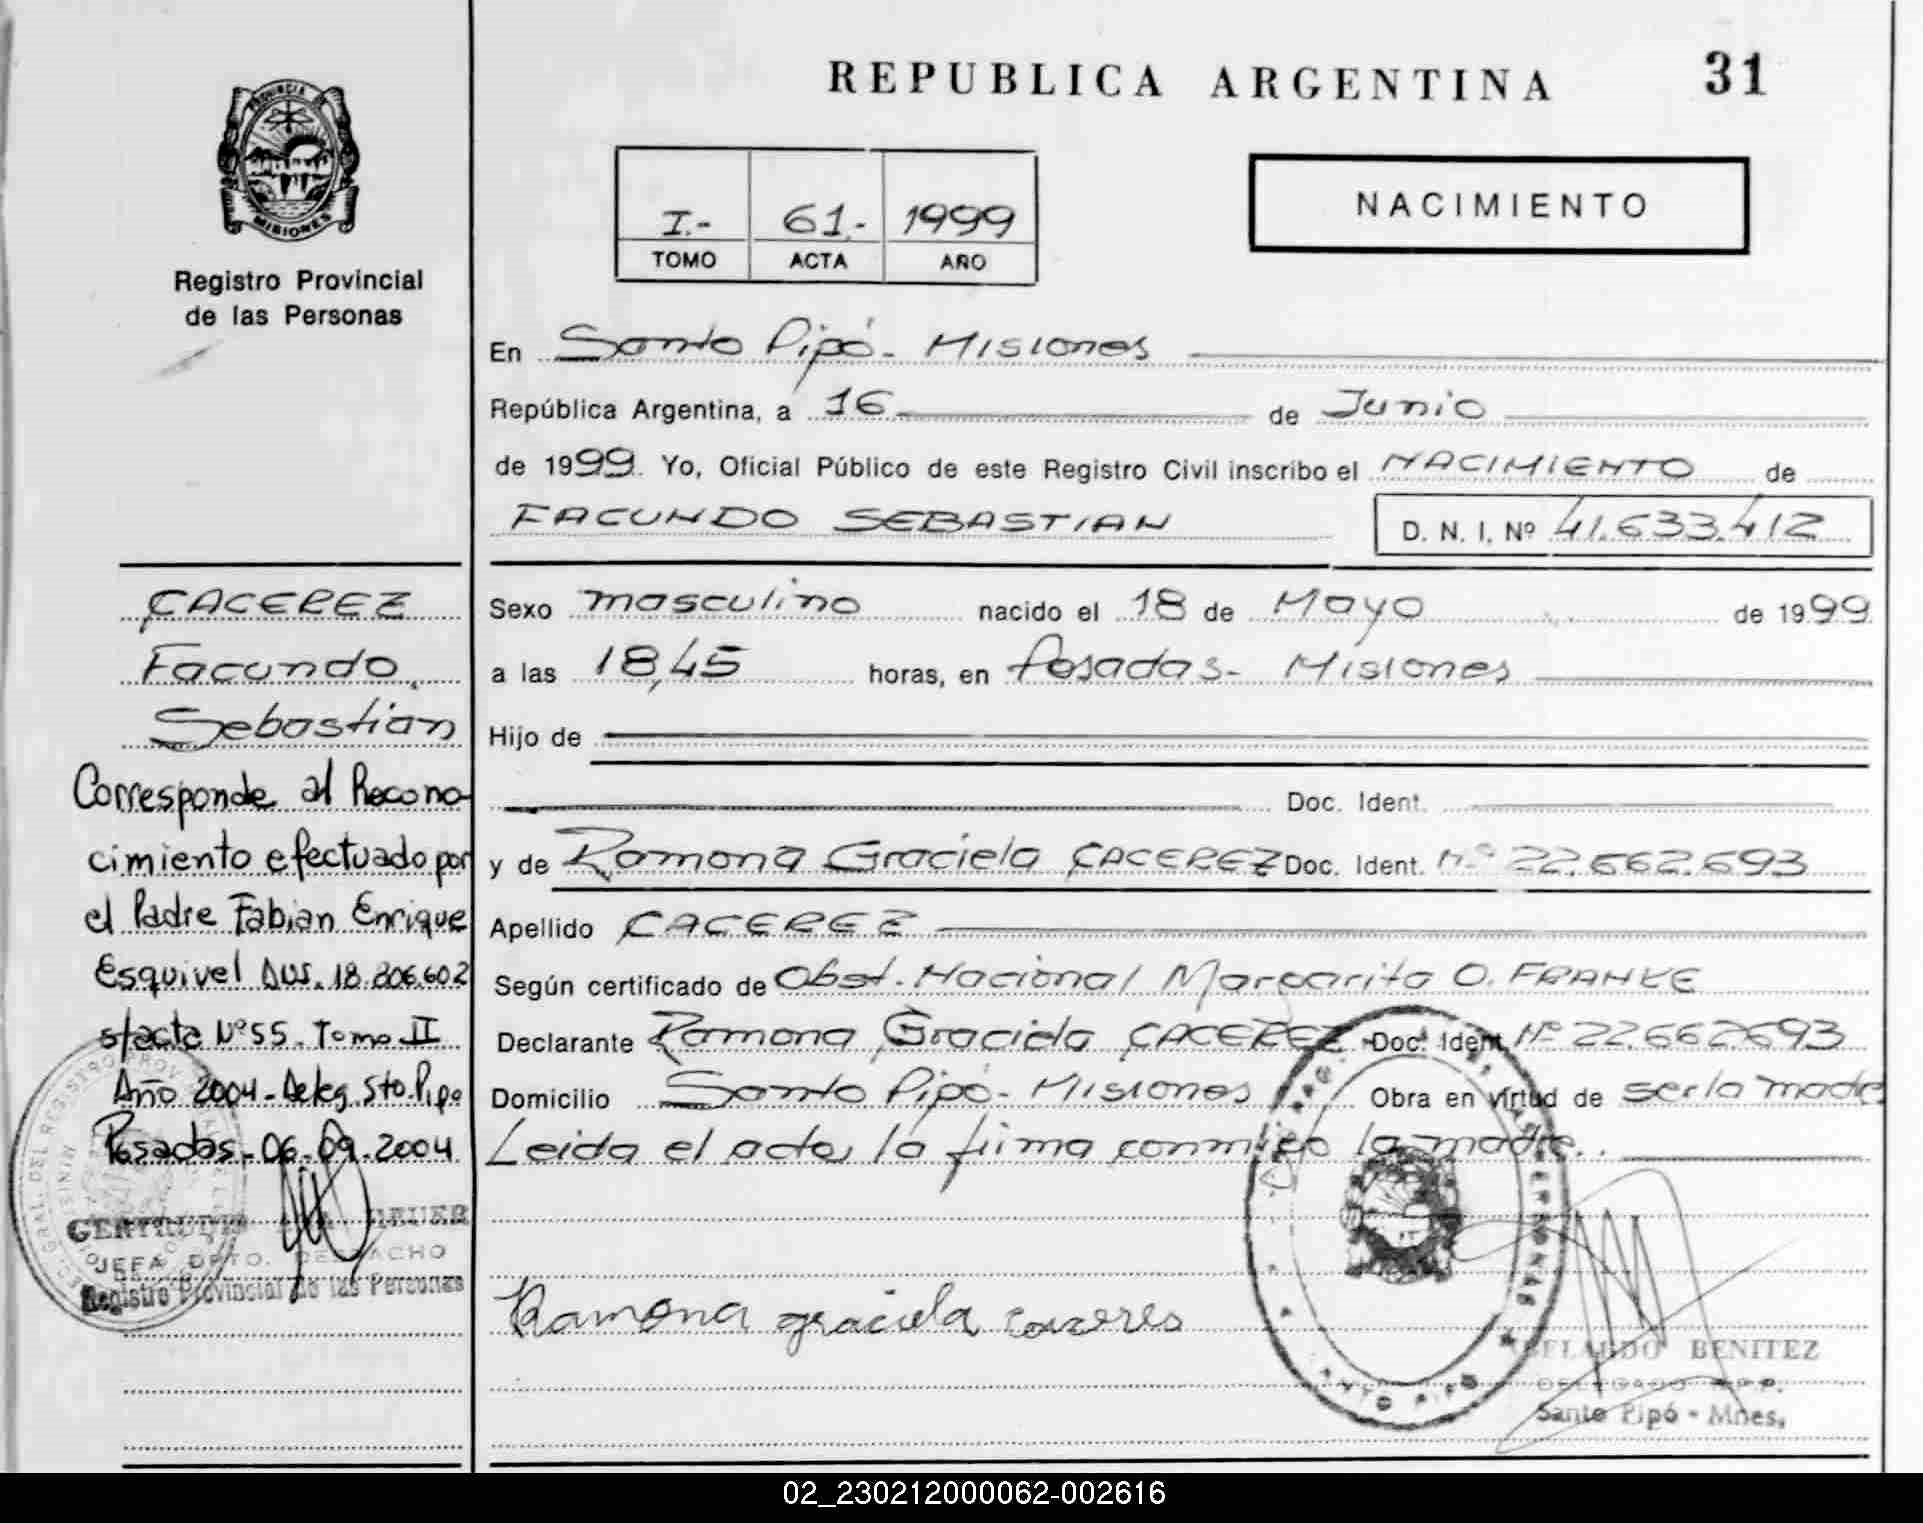 REPUBLICA ARGENTINA
31
PROVINCIA DE
MISIONES
Registro Provincial
de las Personas
I.- 61.- 1999
TOMO ACTA AÑO
NACIMIENTO
En Santo Pipó - Misiones
República Argentina, a 16 de Junio
de 1999. Yo, Oficial Público de este Registro Civil inscribo el NACIMIENTO de
FACUNDO SEBASTIAN
D. N. I. Nº 41.633.412
Sexo masculino nacido el 18 de Mayo de 1999
a las 18,45 horas, en Posadas - Misiones
Hijo de
Doc. Ident.
y de Ramona Graciela CACEREZ Doc. Ident. Nº 22.662.693
Apellido CACEREZ
Según certificado de Obst. Nacional Margarita O. FRANKE
Declarante Ramona Graciela CACEREZ Doc. Ident. Nº 22.662.693
Domicilio Santo Pipó - Misiones Obra en virtud de ser la madre
Leida el acta, la firma conmigo la madre.
Ramona graciela caceres
BENITEZ
DELEGADO R.P.P.
Santo Pipó - Mnes.
CACEREZ
Facundo
Sebastian
Corresponde al Recono-
cimiento efectuado por
el Padre Fabian Enrique
Esquivel 18.806.602
s/acta Nº 55. Tomo II
Año 2004 - Deleg. Sto. Pipo
Posadas - 06 - 09 - 2004
JEFA DPTO. DESPACHO
Registro Provincial de las Personas
02_230212000062-002616